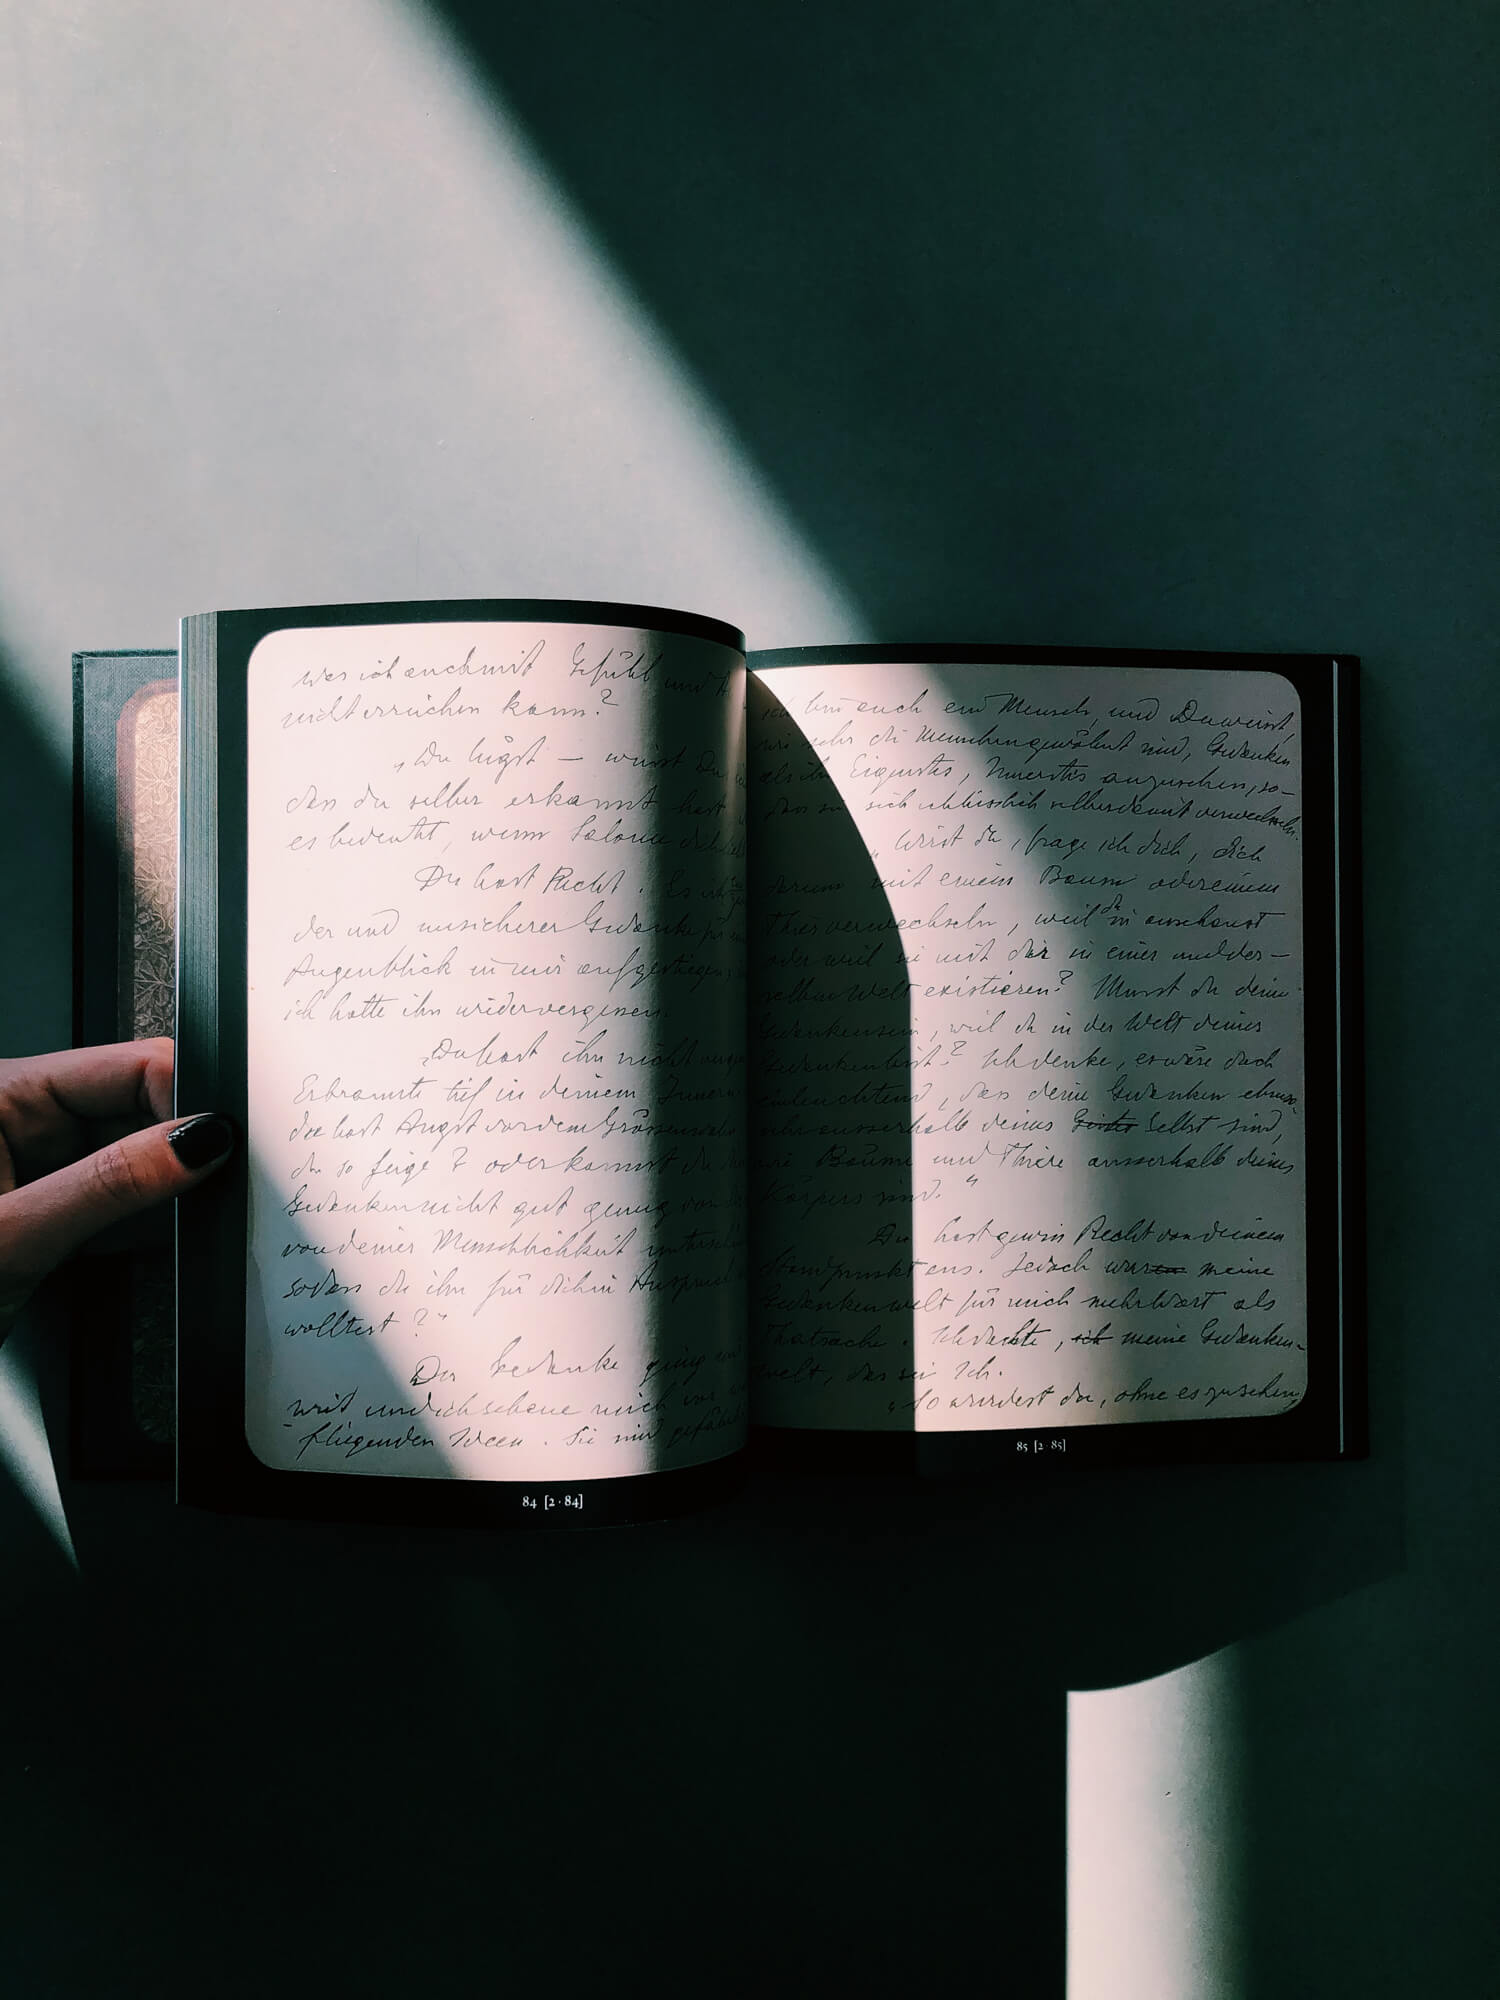 was ich auch mit Gefühl und
nicht erreichen kann?
„Du lügst — wusst Du
dass du selber erkannt hast
es bedeutet, wenn Salome dich
Du hast Recht. Es ist
der und unsicherer Gedanke für
Augenblick in mir aufgestiegen,
ich hatte ihn wider vergessen.
„Du hast ihn nicht
Er brannte tief in deinem Innern
du hast Angst vor dem Grössenwahn
du so feige? oder kannst du
Gedanken nicht gut genug von
von deiner Menschlichkeit
sodass du ihn für dich in Anspruch
wolltest?"
Der Gedanke ging
weit und ich scheue mich vor
fliegenden Ideen. Sie sind gefährlich
84 [2·84]
ich bin auch ein Mensch, und Du weisst
wie sehr die Menschen gewöhnt sind, Gedanken
als ihr Eigenstes, Innerstes anzusehen, so-
dass sie sich schliesslich selber damit verwechseln.
„Wirst du, frage ich dich, dich
darum mit einem Baum oder einem
Thier verwechseln, weil du sie anschaust
oder weil sie mit dir in einer und der-
selben Welt existieren? Musst du deine
Gedanken sein, weil du in der Welt deiner
Gedanken bist? Ich denke, es wäre doch
einleuchtend, dass deine Gedanken ebenso
sehr ausserhalb deines Geistes Selbst sind,
wie Bäume und Thiere ausserhalb deines
Körpers sind."
Du hast gewiss Recht von deinem
Standpunkt aus. Jedoch waren meine
Gedankenwelt für mich mehr Wort als
Thatsache. Ich dachte, ich meine Gedanken-
welt, das sei Ich.
„So wurdest du, ohne es zu sehen,
85 [2·85]